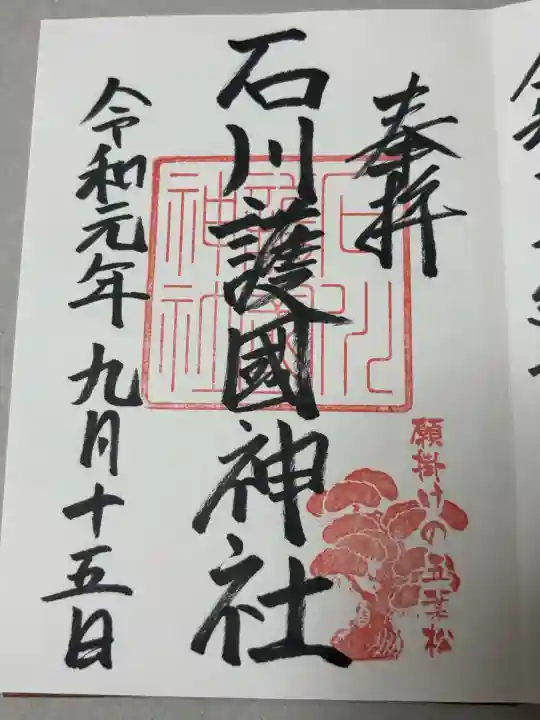 奉拝
石川護國神社
石川
護國
神社
願掛けの五葉松
令和元年九月十五日